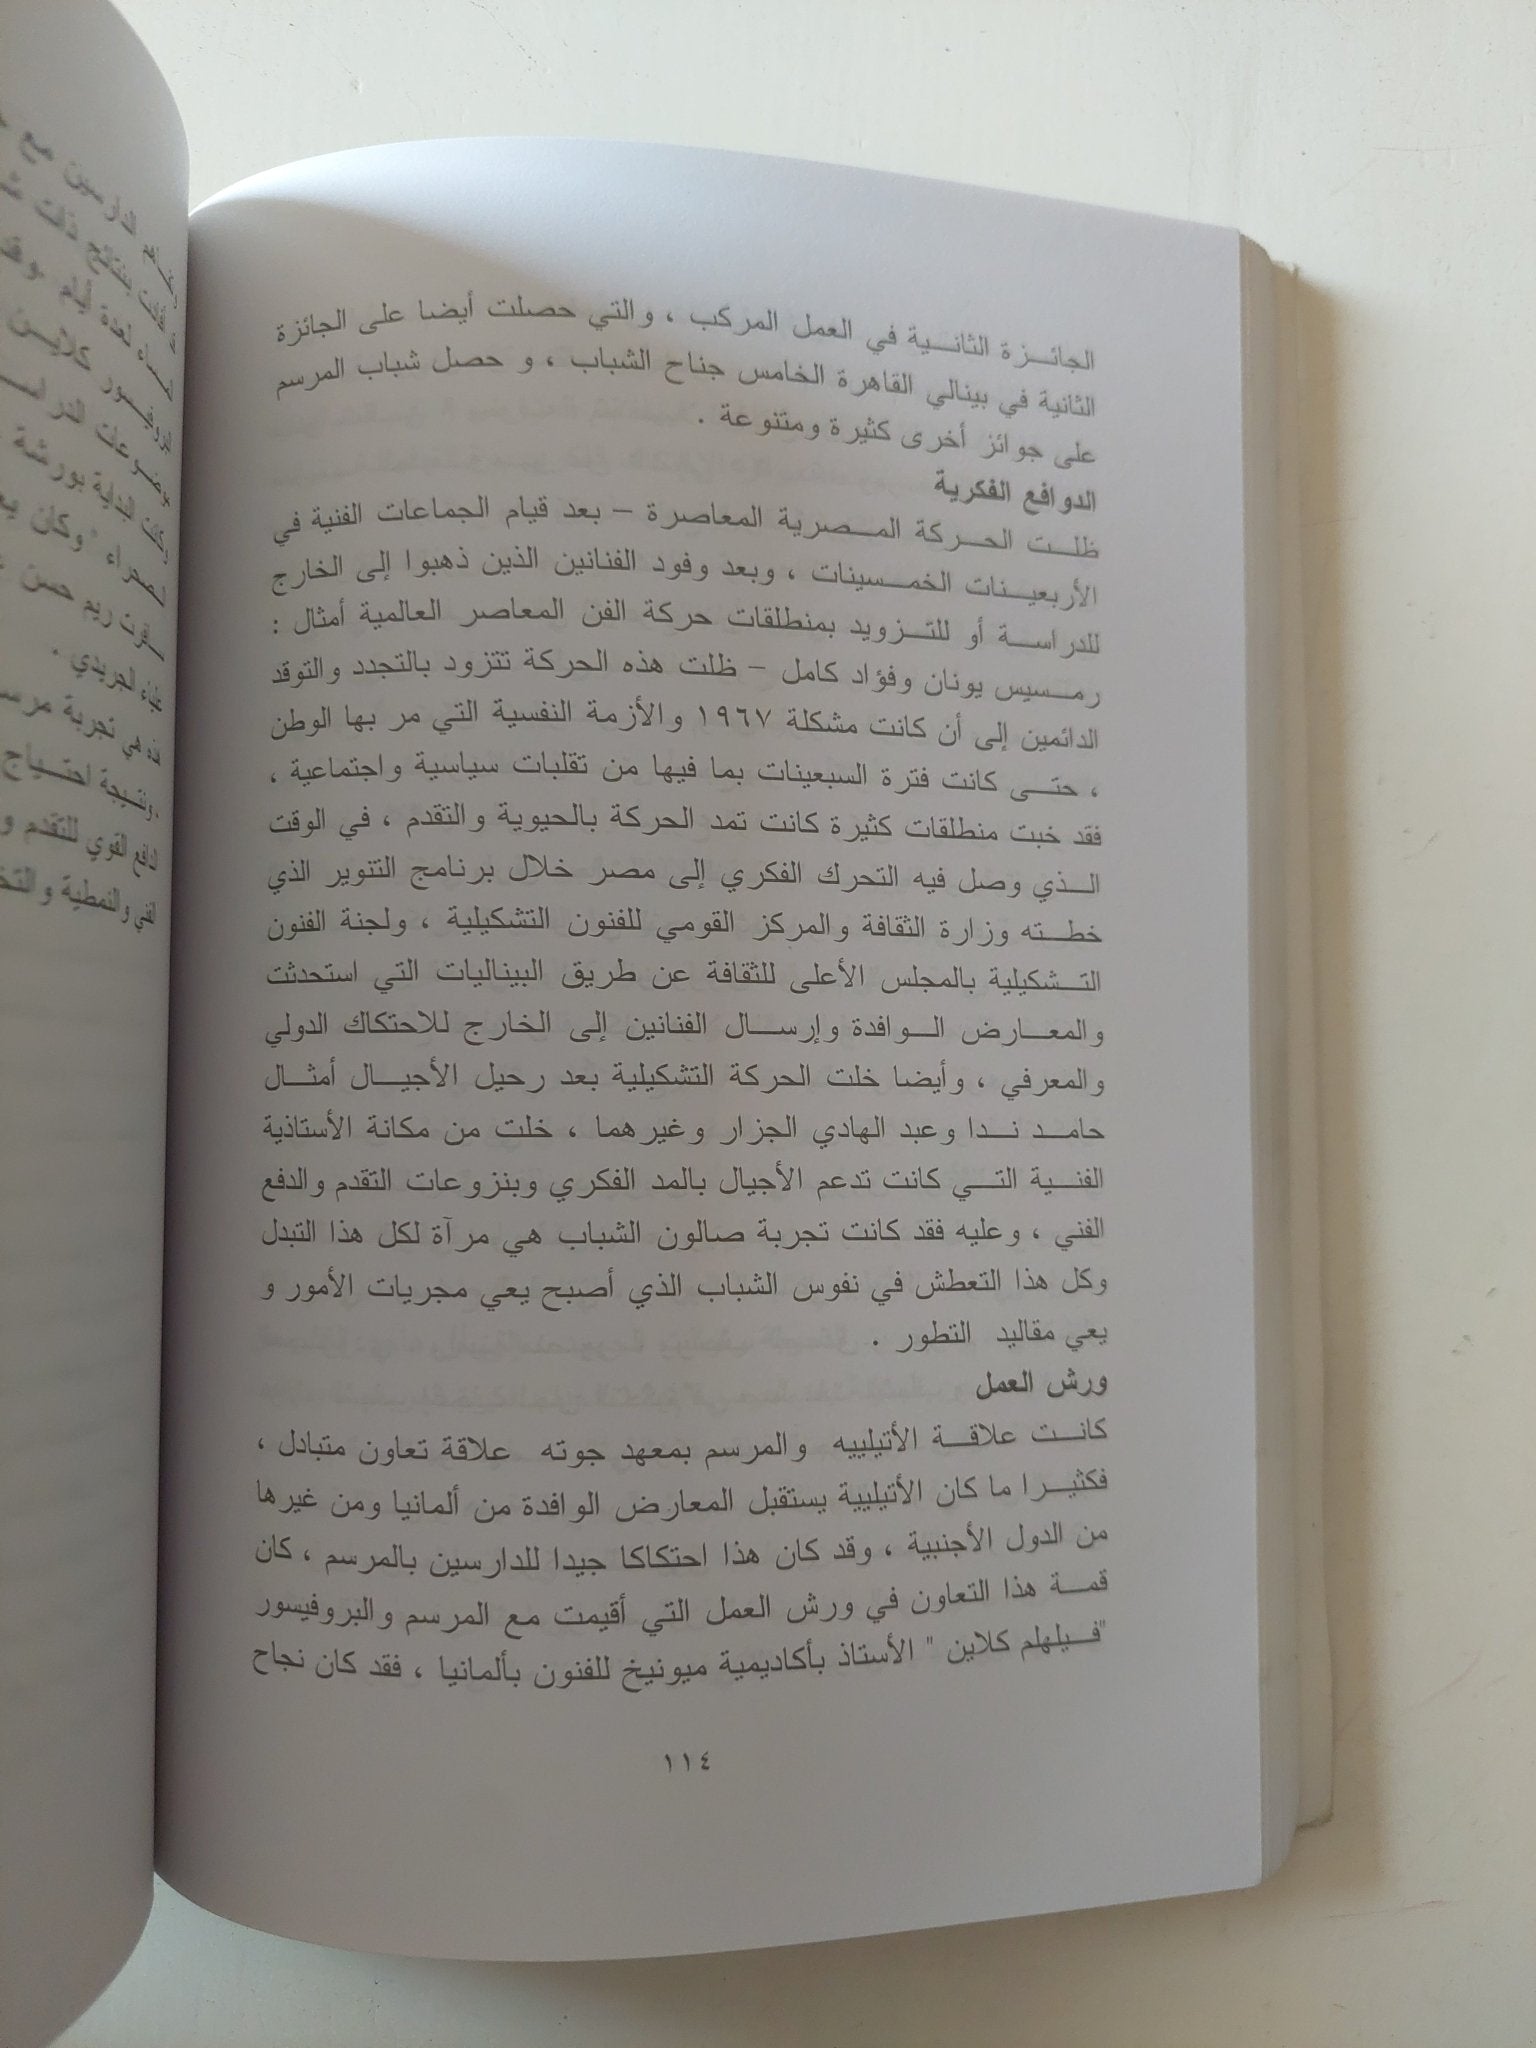 الجائزة الثانية في العمل المركب ، والتي حصلت أيضا على الجائزة
الثانية في بينالي القاهرة الخامس جناح الشباب ، و حصل شباب المرسم
على جوائز أخرى كثيرة ومتنوعة .
الدوافع الفكرية
ظلت الحركة المصرية المعاصرة – بعد قيام الجماعات الفنية في
الأربعينات الخمسينات ، وبعد وفود الفنانين الذين ذهبوا إلى الخارج
للدراسة أو للتزويد بمنطلقات حركة الفن المعاصر العالمية أمثال :
رمسيس يونان وفؤاد كامل – ظلت هذه الحركة تتزود بالتجدد والتوقد
الدائمين إلى أن كانت مشكلة ١٩٦٧ والأزمة النفسية التي مر بها الوطن
، حتى كانت فترة السبعينات بما فيها من تقلبات سياسية واجتماعية ،
فقد خبت منطلقات كثيرة كانت تمد الحركة بالحيوية والتقدم ، في الوقت
الذي وصل فيه التحرك الفكري إلى مصر خلال برنامج التنوير الذي
خطته وزارة الثقافة والمركز القومي للفنون التشكيلية ، ولجنة الفنون
التشكيلية بالمجلس الأعلى للثقافة عن طريق البيناليات التي استحدثت
والمعارض الوافدة وإرسال الفنانين إلى الخارج للاحتكاك الدولي
والمعرفي ، وأيضا خلت الحركة التشكيلية بعد رحيل الأجيال أمثال
حامد ندا وعبد الهادي الجزار وغيرهما ، خلت من مكانة الأستاذية
الفنية التي كانت تدعم الأجيال بالمد الفكري وبنزوعات التقدم والدفع
الفني ، وعليه فقد كانت تجربة صالون الشباب هي مرآة لكل هذا التبدل
وكل هذا التعطش في نفوس الشباب الذي أصبح يعي مجريات الأمور و
يعي مقاليد التطور .
ورش العمل
كانت علاقة الأتيلييه والمرسم بمعهد جوته علاقة تعاون متبادل ،
فكثيرا ما كان الأتيليية يستقبل المعارض الوافدة من ألمانيا ومن غيرها
من الدول الأجنبية ، وقد كان هذا احتكاكا جيدا للدارسين بالمرسم ، كان
قمة هذا التعاون في ورش العمل التي أقيمت مع المرسم والبروفيسور
"فيلهلم كلاين " الأستاذ بأكاديمية ميونيخ للفنون بألمانيا ، فقد كان نجاح
١١٤
الدارسين مع
كلاين
البداية بورشة
وكان
ريم حسن
الجريدي .
هي تجربة
ونتيجة احتياج
الدافع القوي للتقدم
الفني والنمطية